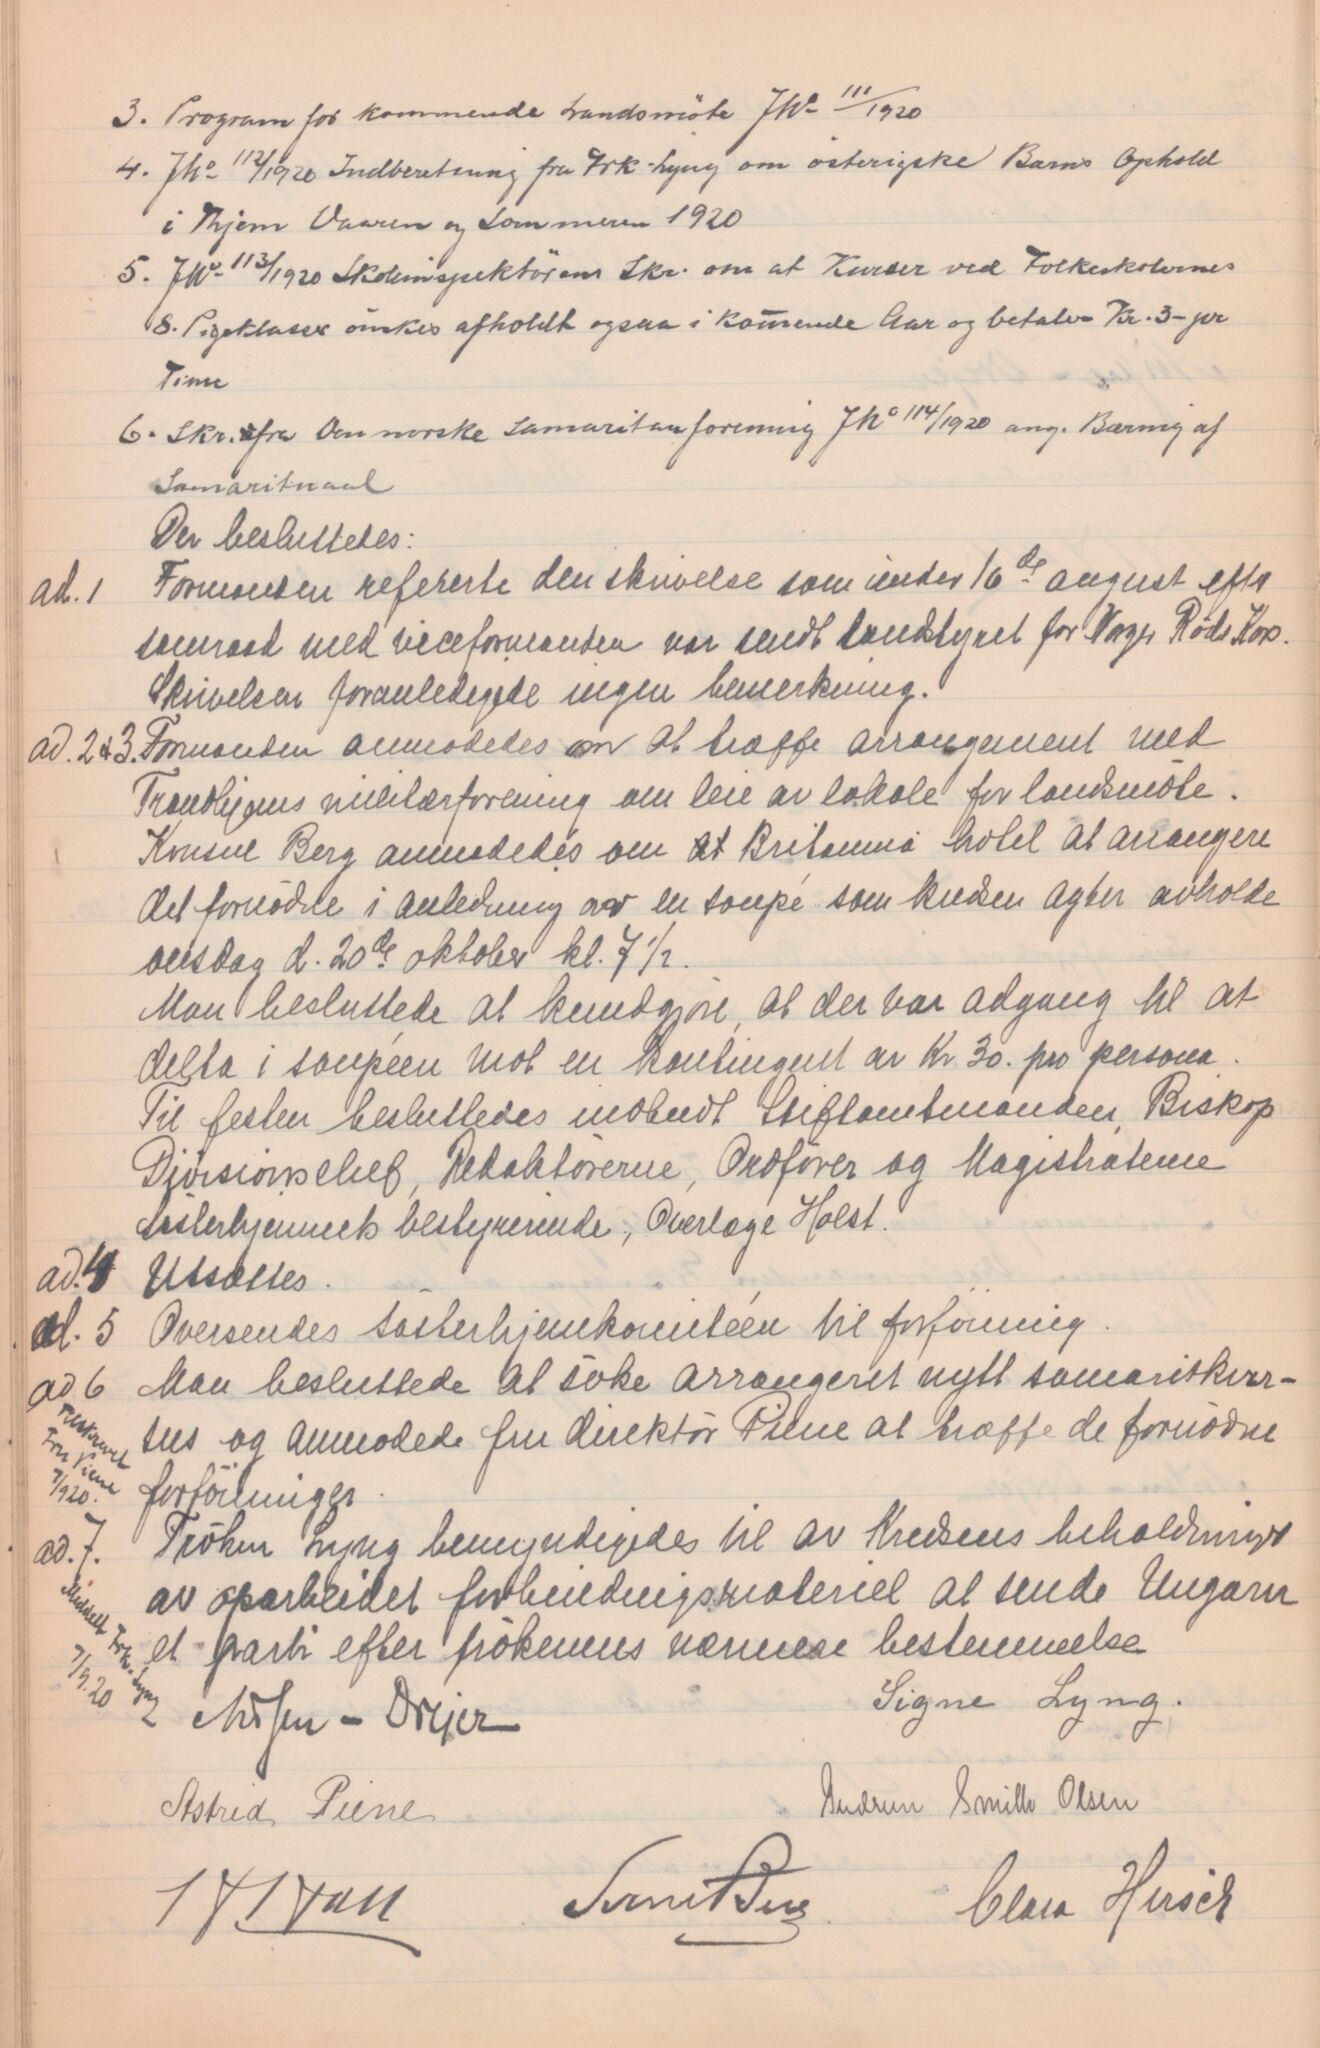 3. Program for kommende Landsmöte JNo 111/1920
4. JNo 112/1920 Indberetning fra Frk. Lyng om österigske Barns Ophold
i Thjem Vaaren og Sommeren 1920
5. JNo 113/1920 Skoleinspektörens Skr. om at Kurser ved Folkeskolernes
8. Pigeklasser önskes afholdt ogsaa i kommende Aar og betaler Kr. 3- per
Time
6. Skr. fra Den norske Samaritanforening JNo 114/1920 ang. Bærnig af
Samaritnaal
Der besluttedes:
ad. 1 Formanden refererte den skrivelse som under 16de august efter
samraad med viceformanden var sendt Landstyret for Norges Røds Kors.
Skrivelsen foranledigede ingen bemerkning.
ad. 2 & 3. Formanden anmodedes om at træffe arrangement med
Trondhjems militærforening om leie av lokale for landsmöte.
Konsul Berg anmodedes om at Britannia hotel at arrangere
det fornödne i anledning av en soupé som kredsen agter avholde
onsdag d. 20de oktober kl. 7 1/2.
Man besluttede at kundgjöre, at der var adgang til at
delta i soupéen mot en kontingent av Kr 30. pro persona.
Til festen besluttedes indbudt Stiftamtmanden, Biskop
Divisionschef, Redaktörerne, Ordförer og Magistraterne
Søsterhjemmets bestyrerinde, Overlæge Holst.
ad. 4 Utsættes.
ad. 5 Oversendes Søsterhjemkomitéen til forföining.
ad 6 Man besluttede at söke arrangeret nytt samaritkur-
sus og anmodede fru direktör Piene at træffe de fornödne
forföininger.
Tilskrevet
Fru Piene
7/920.
ad. 7. Fröken Lyng bemyndigedes til av Kredsens beholdninger
av oparbeidet forbindingsmateriel at sende Ungarn
et parti efter frökenens nærmere bestemmelse
Middelt Frk. Lyng
7/9.20
Signe Lyng.
Dreyer
Astrid Piene
Gudrun Smith Olsen
Clara Hirsch